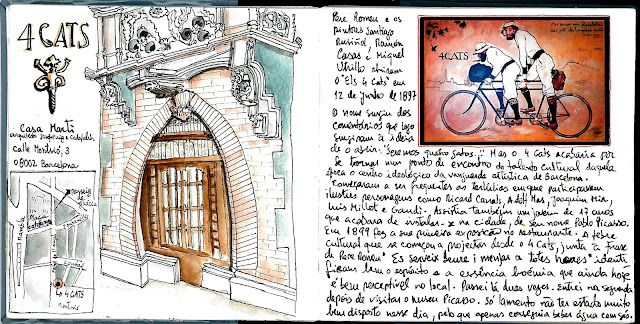 4 CATS
Casa Martí
arquitecto Puig i Cadafalch
Calle Montsió, 3
08002 Barcelona
4o 4 CATS
Pere Romeu e os
pintores Santiago
Rusiñol, Ramón
Casas e Miquel
Utrillo abriram
o "Els 4 Cats" em
12 de Junho de 1897
O nome surgiu dos
comentários que logo
surgiram à ideia
de o abrir. "Seremos quatro gatos..." Mas o 4 Cats acabaria por
se tornar num ponto de encontro do talento cultural daquela
época e centro ideológico da vanguarda artística de Barcelona.
Começaram a ser frequentes as tertúlias em que participavam
ilustres personagens como Ricard Canals, Adolf Mas, Joaquim Mir,
Luis Millot e Gaudí. Assistiu também um jovem de 17 anos
que acabara de instalar-se na cidade, de seu nome Pablo Picasso.
Em 1899 fez a sua primeira exposição no restaurante. A febre
cultural que se começou a projectar desde o 4 Cats, junta à frase
de Pere Romeu "Es serveix beure i menjar a totes hores" identi
ficam bem o espírito e a essência boémia que ainda hoje
é bem perceptível no local. Passei lá duas vezes. Entrei na segunda
depois de visitar o museu Picasso. Só lamento não ter estado muito
bem disposto nesse dia, pelo que apenas consegui beber água com gás.
4CATS